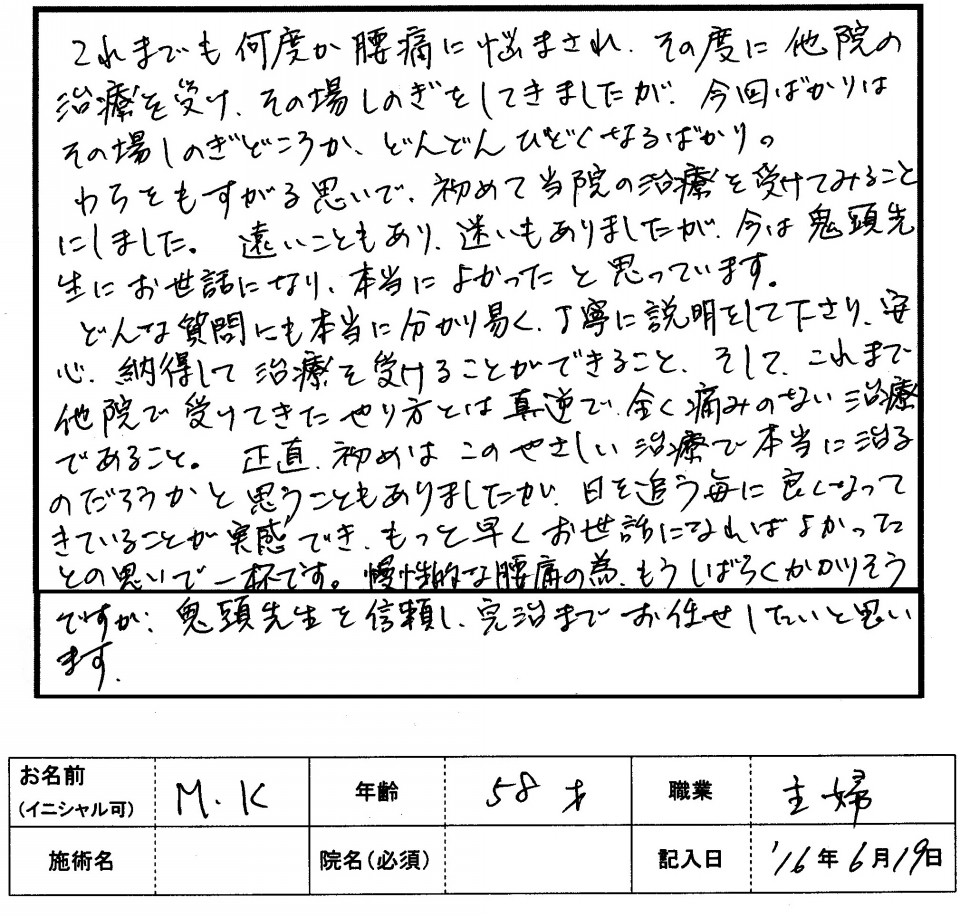 これまでも何度か腰痛に悩まされ、その度に他院の
治療を受け、その場しのぎをしてきましたが、今回ばかりは
その場しのぎどころか、どんどんひどくなるばかり。
わらをもすがる思いで、初めて当院の治療を受けてみること
にしました。遠いこともあり、迷いもありましたが、今は鬼頭先
生にお世話になり、本当によかったと思っています。
どんな質問にも本当に分かり易く、丁寧に説明をして下さり、安
心、納得して治療を受けることができること、そして、これまで
他院で受けてきたやり方とは真逆で、全く痛みのない治療
であること。正直、初めはこのやさしい治療で本当に治る
のだろうかと思うこともありましたが、日を追う毎に良くなって
きていることが実感でき、もっと早くお世話になればよかった
との思いで一杯です。慢性的な腰痛の為、もうしばらくかかりそう
ですが、鬼頭先生を信頼し、完治までお任せしたいと思い
ます。
お名前 (イニシャル可) M.K 年齢 58才 職業 主婦
施術名 院名(必須) 記入日 '16年6月19日